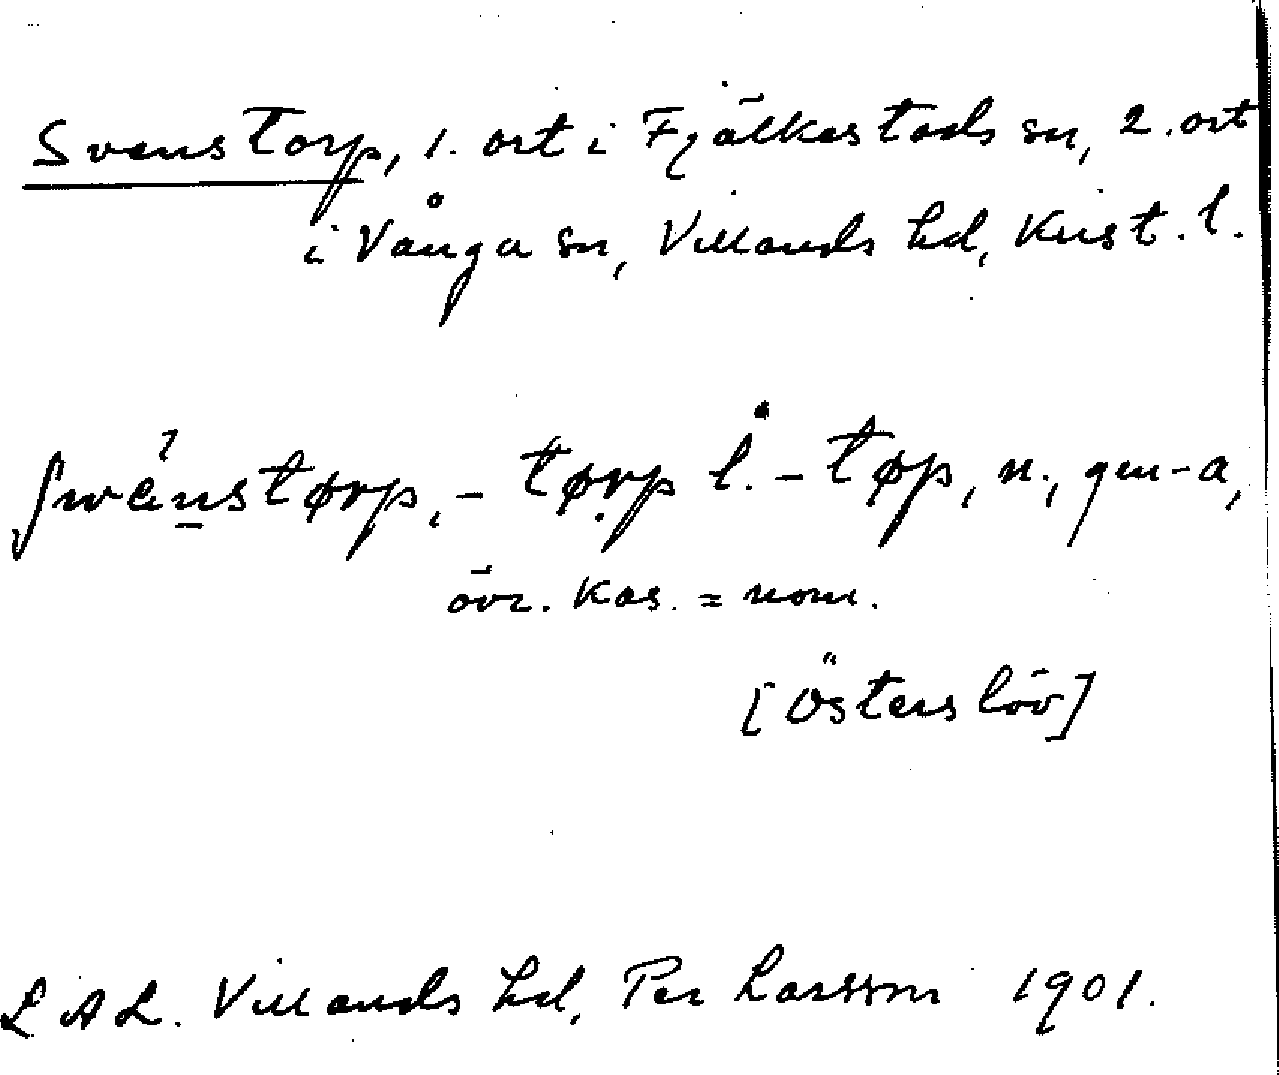 Svenstorp, 1. ort i Fjälkestads sn, 2. ort
i Vånga sn, Villands hd, Krist. l.
-tørp l. -tøp, n., gm -a,
övr. kas. = nom.
[Österslöv]
LAL. Villands hd, Per Larsson 1901.